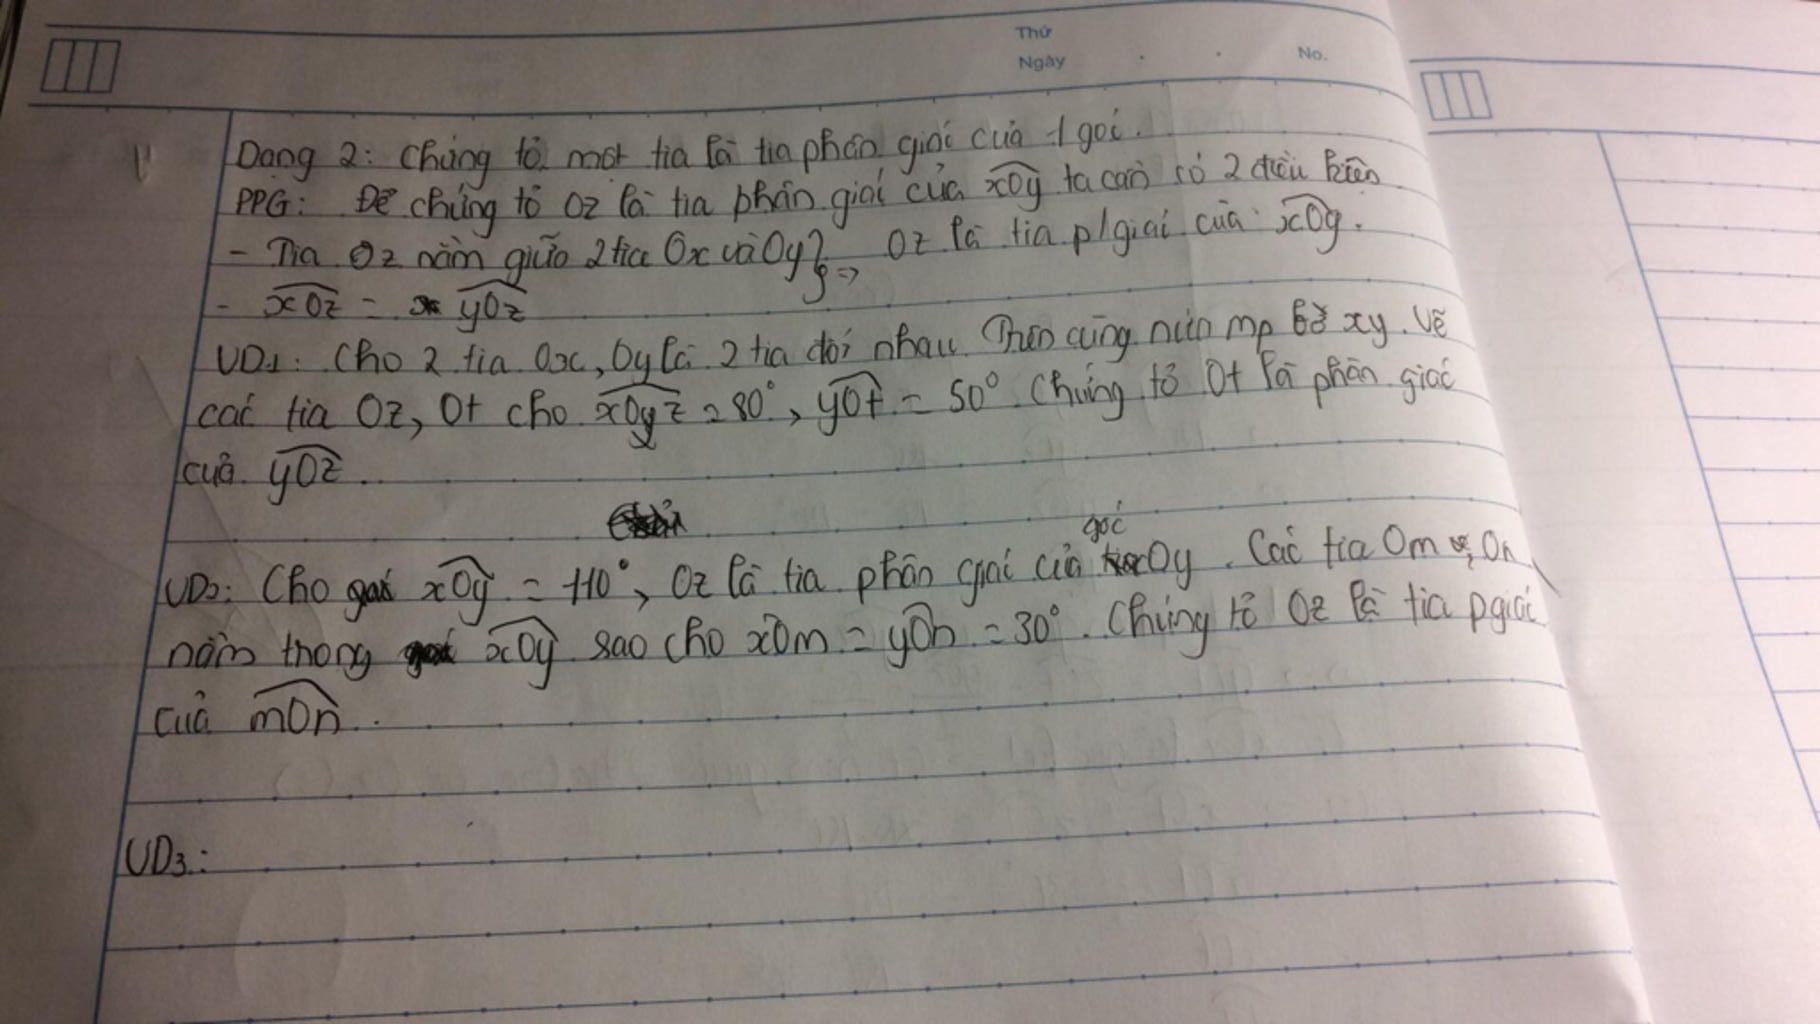 Thứ
Ngày
No.
Dạng 2: Chứng tỏ một tia là tia phân giác của 1 góc.
PPG: Để chứng tỏ Oz là tia phân giác của xOy ta cần có 2 điều kiện
- Tia Oz nằm giữa 2 tia Ox và Oy } => Oz là tia p/giác của xOy.
- xOz = yOz
VD1: Cho 2 tia Ox, Oy là 2 tia đối nhau. Trên cùng nửa mp bờ xy. Vẽ
các tia Oz, Ot cho xOz = 80°, yOt = 50°. Chứng tỏ Ot là phân giác
của yOz.
VD2: Cho xOy = 110°, Oz là tia phân giác của góc xOy. Các tia Om, On
nằm trong xOy sao cho xOm = yOn = 30°. Chứng tỏ Oz là tia pgiác
của mOn.
VD3: